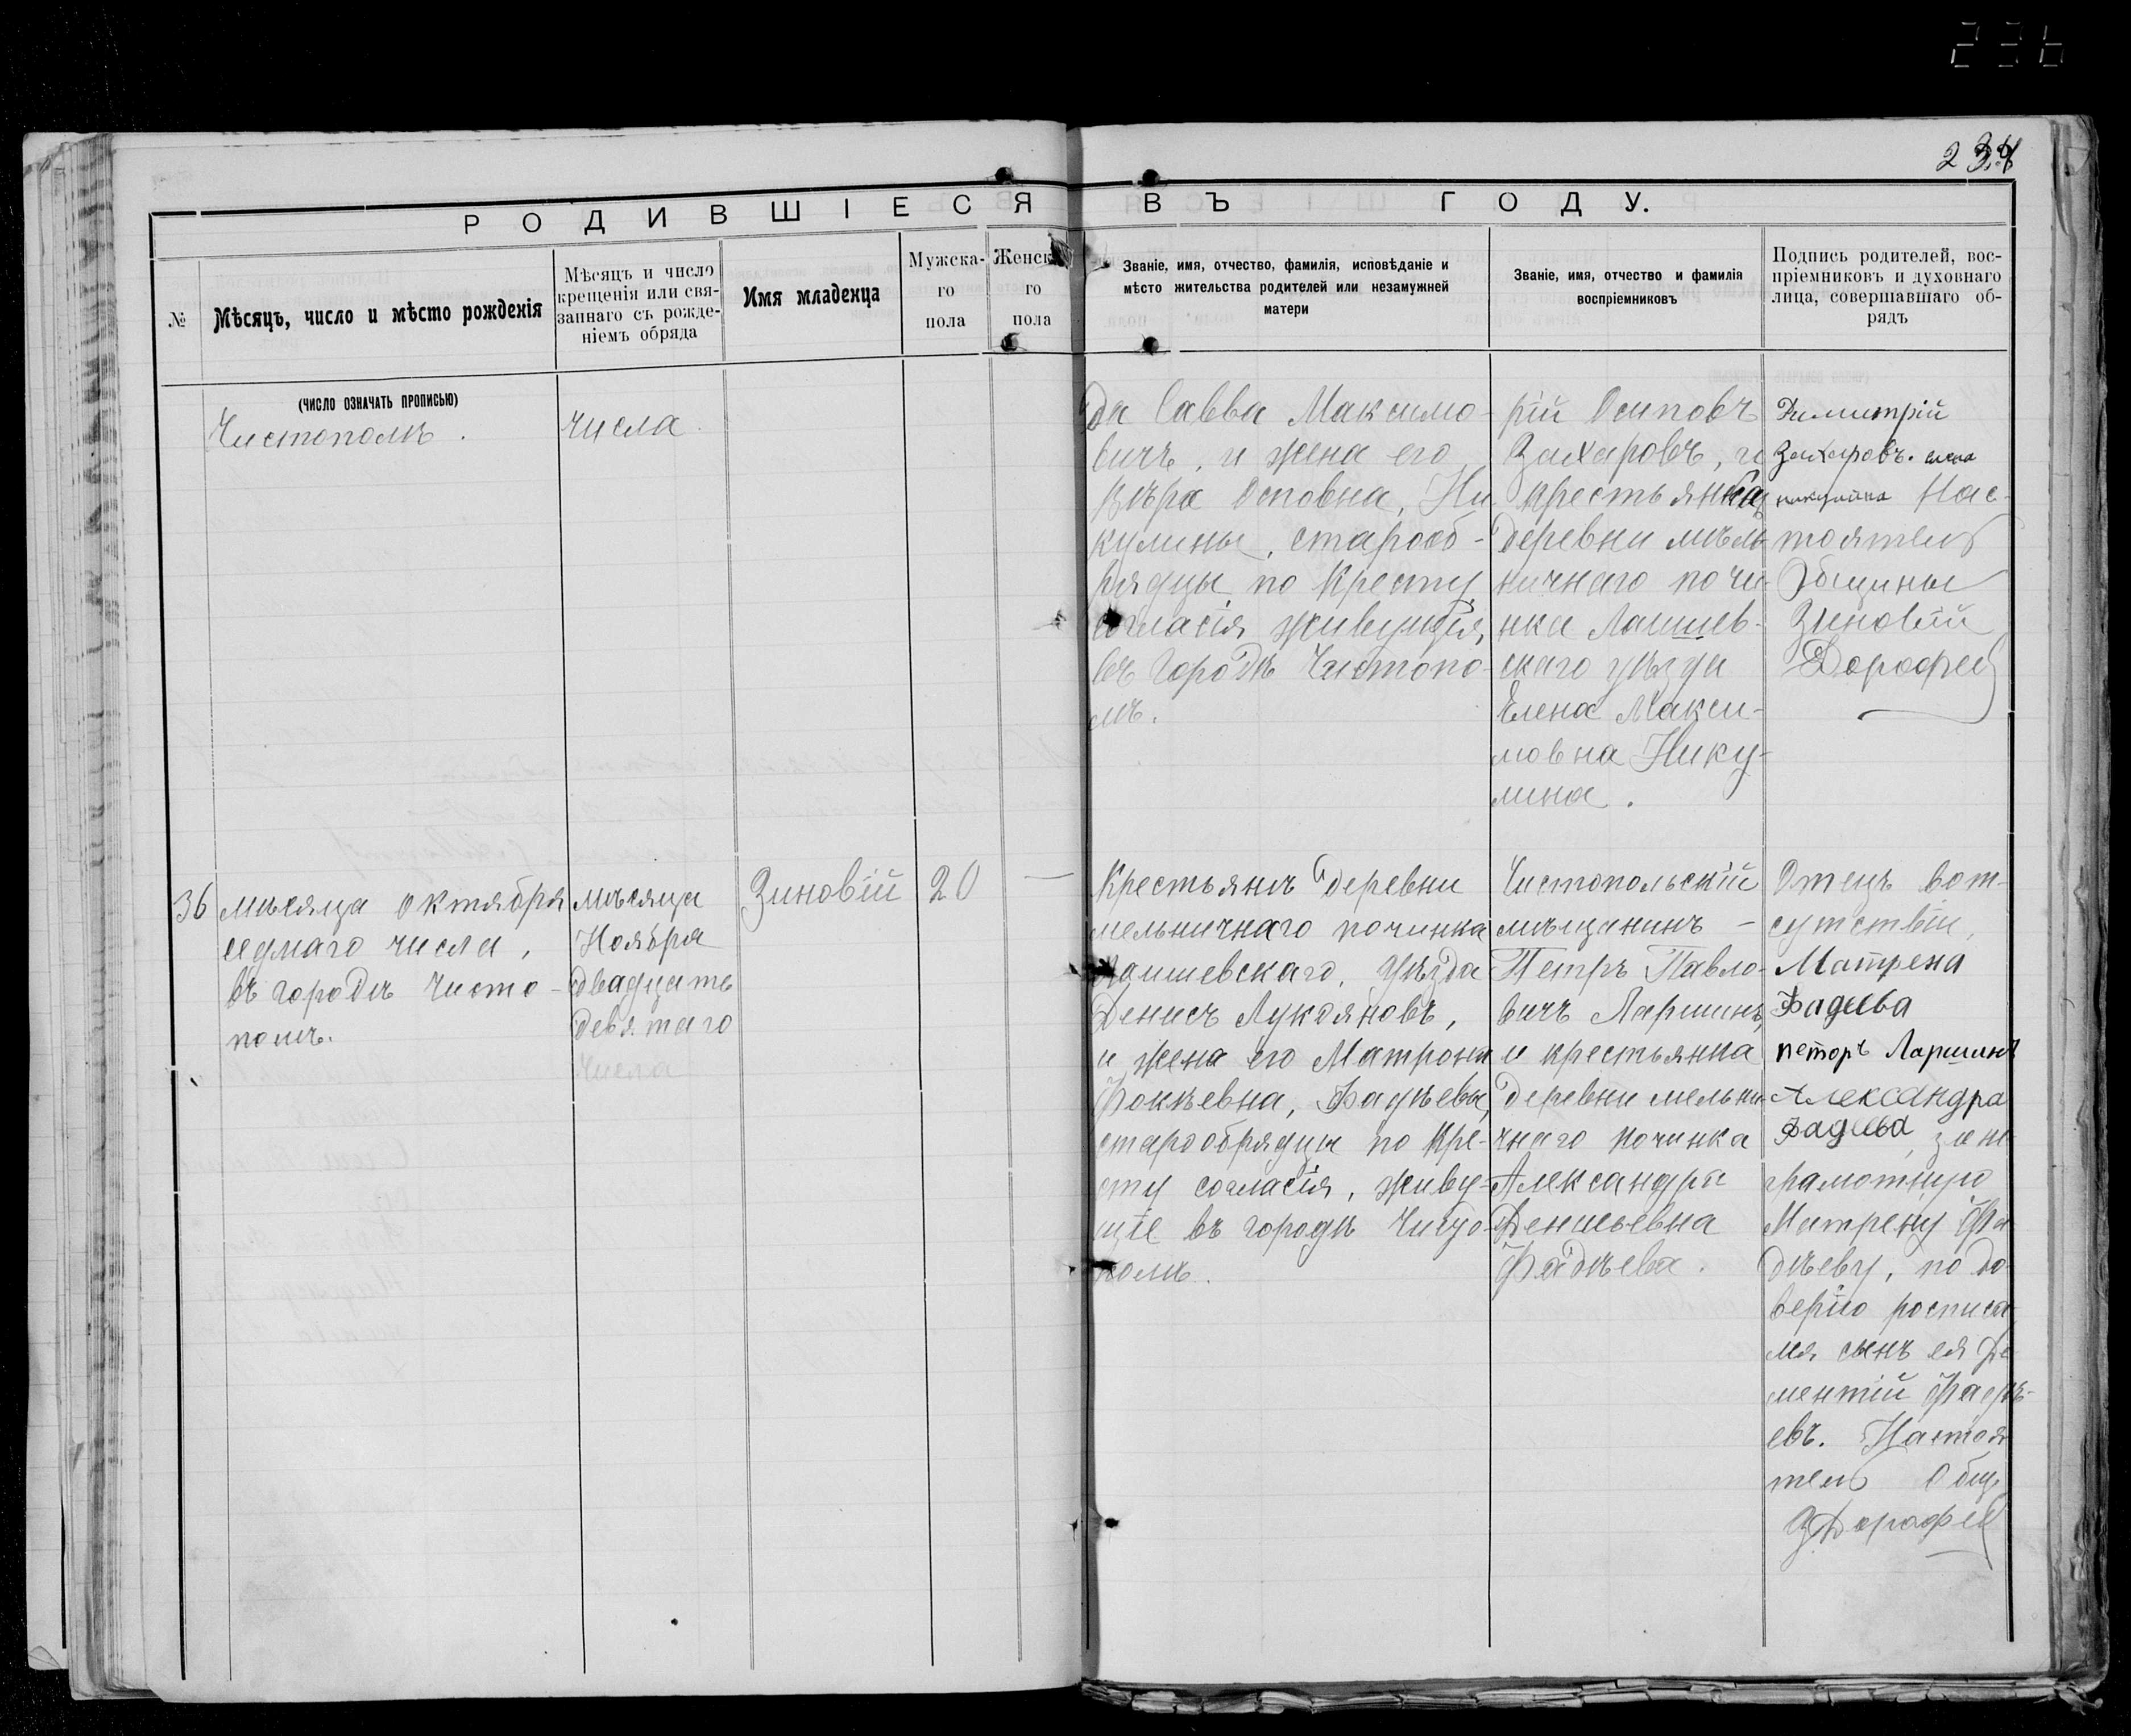 236
РОДИВШІЕСЯ ВЪ ГОДУ.
№
Мѣсяцъ, число и мѣсто рожденія
Мѣсяцъ и число
крещенія или свя-
заннаго съ рожде-
ніемъ обряда
Имя младенца
Мужска-
го
пола
Женск
го
пола
Званіе, имя, отчество, фамилія, исповѣданіе и
мѣсто жительства родителей или незамужней
матери
Званіе, имя, отчество и фамилія
воспріемниковъ
Подпись родителей, вос-
пріемниковъ и духовнаго
лица, совершавшаго об-
рядъ
(ЧИСЛО ОЗНАЧАТЬ ПРОПИСЬЮ)
Чистополѣ.
числа
да Савва Максимо-
вичъ, и жена его
Вѣра Оповна, Ни
кулины, старооб-
рядцы по Кресту
согласія живущія,
въ городѣ Чистопо-
лѣ.
рій Осиповъ
Захаровъ, и
крестьянка
деревни мѣль
ничнаго почи-
нка Лаишев-
скаго уѣзда
Елена Макси-
мовна Нику-
лина.
Димитрій
Захаровъ. елена
никулина Нас-
тоятель
Общины
Зиновій
Дорофеев
36
мѣсяца октября
седмаго числа,
въ городѣ Чисто-
полѣ.
мѣсяца
Ноября
двадцать
девятаго
числа
Зиновій
20
—
Крестьянъ деревни
мельничнаго починка
Лаишевскаго, уѣзда
Денисъ Лукояновъ,
и жена его Матрона
Фокѣевна, Фадѣевы,
старообрядцы по Кре-
сту согласія, живу-
щіе въ городѣ Чисто-
полѣ.
Чистопольскій
мѣщанинъ -
Петръ Павло-
вичъ Ларшинъ,
и крестьянка
деревни мельни-
чнаго починка
Александра
Денисьевна
Фадѣева.
Отецъ вот-
сутствіи,
Матрена
Фадеева
петоръ Ларшинъ
Александра
Фадеева, зане
грамотную
Матрену Фа
дѣеву, по до
верію росписа
лся сынъ ея Де
ментій Фадѣ-
евъ. Настоя
тель Общ.
З Дорофеев